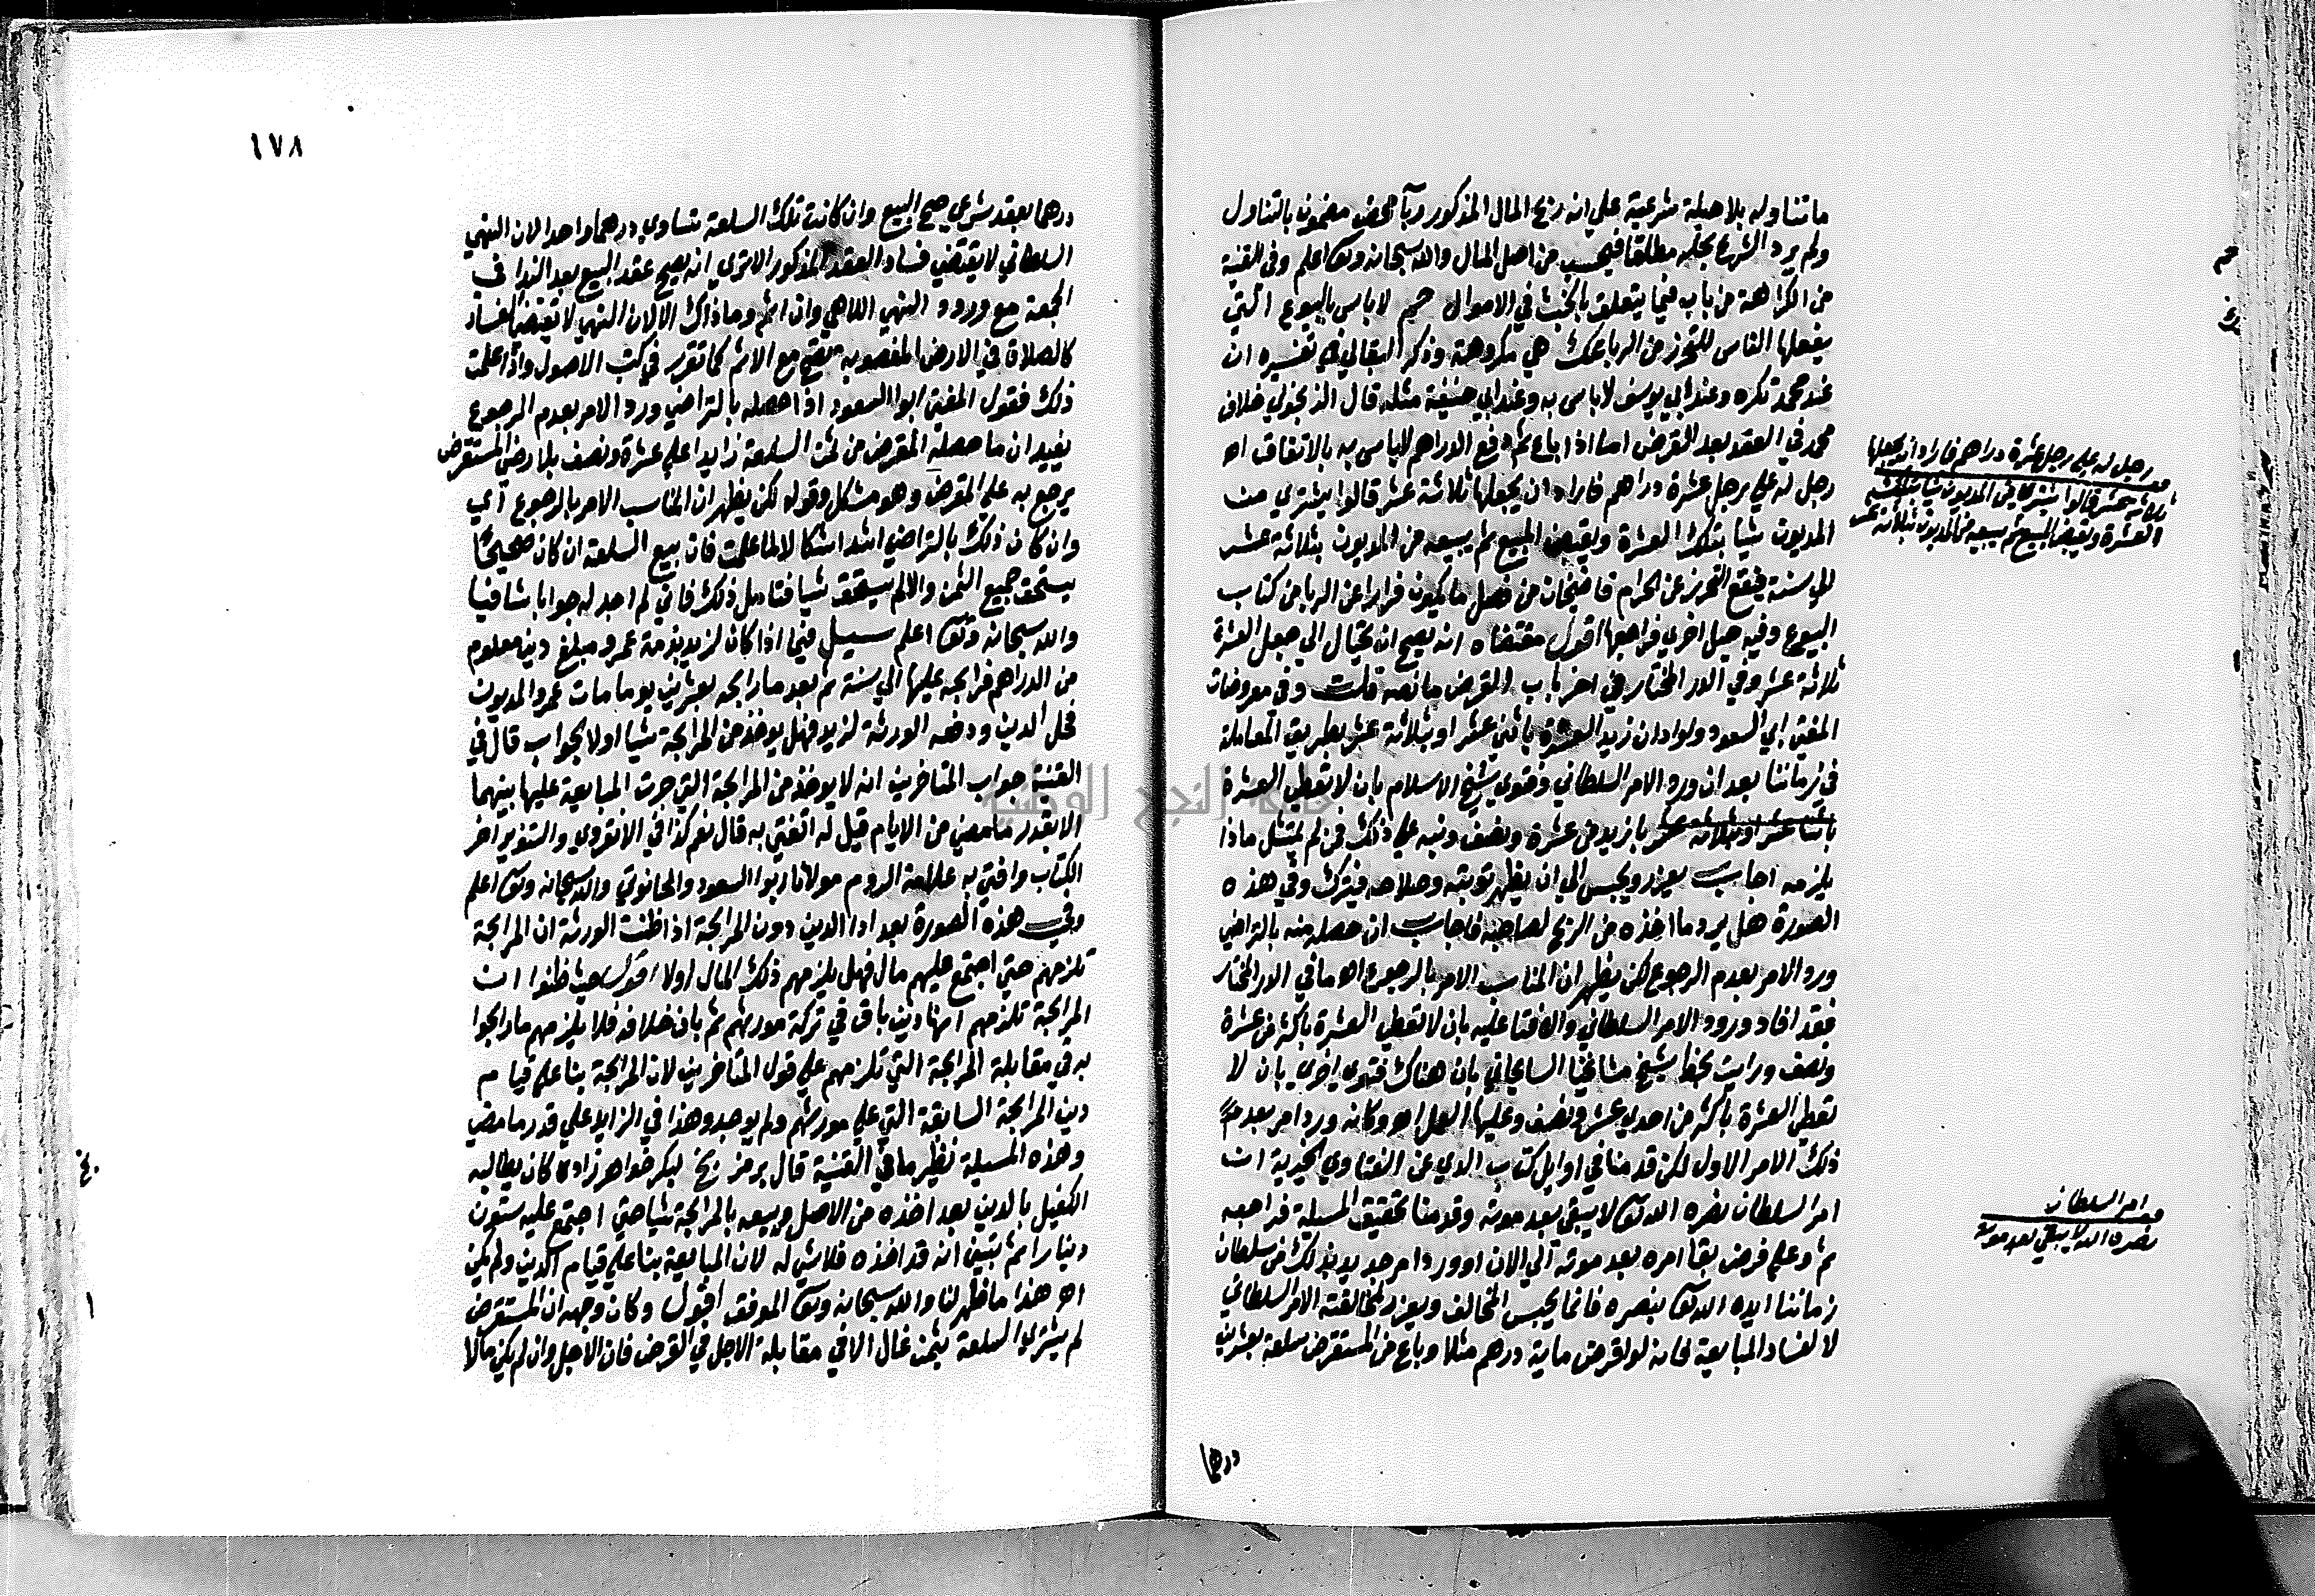 ما تناوله بلا حيلة شرعية علي ان ربح المال المذكور ربآ محض مضمون بالتناول
ولم يرد الشرع بحله مطلقا فيحسب من اصل المال والله سبحانه وتع اعلم وفي القنية
من الكراهة من باب فيما يتعلق بالخبث في الاموال لا باس بالبيوع التي
يفعلها الناس للتحرز من الربا عك هي مكروهة وذكر البقالي في تفسيره ان
عند محمد تكره وعند ابي يوسف لا باس به وعند ابي حنيفة مثله قال الزرنجري خلاف
محمد في العقد بعد القرض اما اذا باع ثم دفع الدراهم لاباس به بالاتفاق اه
رجل له علي رجل عشرة دراهم فاراد ان يجعلها ثلاثة عشر قالوا يشتري من
المديون شيا بتلك العشرة ويقبض المبيع ثم يبيعه من المديون بثلاثة عشر
الي سنة فيقع التحرز عن الحرام قاضيخان من فصل ما يكون فرارا عن الربا من كتاب
البيوع وفيه حيل اخري فراجعها اقول مقتضاه انه يصح ان يحتال الي جعل العشرة
ثلاثة عشر وفي الدر المختار في اخر باب القرض ما نصه قلت وفي معروضات
المفتي ابي السعود ولو ادان زيد العشرة باثني عشر او بثلاثة عشر بطريق المعاملة
في زماننا بعد ان ورد الامر السلطاني وفتوي شيخ الاسلام بان لا تعطي العشرة
باثنا عشر او بثلاثة عشر بازيد من عشرة ونصف ونبه علي ذلك فمن لم يمتثل ماذا
يلزمه اجاب يعزر ويحبس الي ان يظهر توبته وصلاحه فيترك وفي هذه
الصورة هل يرد ما اخذه من الربح لصاحبه فاجاب ان حصله منه بالتراضي
ورد الامر بعدم الرجوع لكن يظهر ان المناسب الامر بالرجوع اه ما في الدر المختار
فقد افاد ورود الامر السلطاني والافتا عليه بان لا تعطي العشرة باكثر من عشرة
ونصف ورايت بخط شيخ مشايخنا السايحاني بان هناك فتوي اخري بان لا
تعطي العشرة باكثر من احدي عشر ونصف وعليها العمل اه وكانه ورد امر بعد
ذلك الامر الاول لكن قدمنا في اوايل كتاب الدي عن الفتاوي الخيرية ان
امر السلطان نصره الله تع لا يبقي بعد موته وقدمنا تحقيق المسيلة فراجعه
ثم وعلي فرض بقا امره بعد موته الي الان او ورد امر جديد بذلك من سلطان
زماننا ايده الله تع بنصره فانما يحبس المخالف ويعزر لمخالفته الامر السلطاني
لا لفساد المبايعة لانه لو اقرض ماية درهم مثلا وباع من المستقرض سلعة بعشرين
درهما
رجل له علي رجل عشرة دراهم فاراد ان يجعلها
ثلاثة عشر قالوا يشتري من المديون شيا بتلك
العشرة ويقبض المبيع ثم يبيعه من المديون بثلاثة عشر
امر السلطان
نصره الله لا يبقي بعد موته
١٧٨
درهما بعقد شرعي صح البيع وان كانت تلك السلعة تساوي درهما واحدا لان النهي
السلطاني لا يقتضي فساد العقد المذكور الا تري انه يصح عقد البيع بعد الندا في
الجمعة مع ورود النهي الالهي وان اثم وما ذاك الا لان النهي لا يقتضي الفساد
كالصلاة في الارض المغصوبة تصح مع الاثم كما تقرر في كتب الاصول واذا علمت
ذلك فقول المفتي ابو السعود اذا حصله بالتراضي ورد الامر بعدم الرجوع
يفيد ان ما حصله المقرض من ثمن السلعة زايدا علي عشرة ونصف بلا رضي المستقرض
يرجع به علي المقرض وهو مشكل وقوله لكن يظهر ان المناسب الامر بالرجوع اي
وان كان ذلك بالتراضي اشد اشكالا لما علمت فان بيع السلعة ان كان صحيحا
يستحق جميع الثمن والا لم يستحق شيا فتامل ذلك فاني لم اجد له جوابا شافيا
والله سبحانه وتع اعلم سيل فيما اذا كان لزيد بذمة عمرو مبلغ دين معلوم
من الدراهم فرابحه عليها الي سنة ثم بعد ما رابحه بعشرين يوما مات عمرو المديون
فحل الدين ودفعه الورثة لزيد فهل يوخذ من المرابحة شيا اولا الجواب قال في
القنية جواب المتاخرين انه لا يوخذ من المرابحة التي جرت المبايعة عليها بينهما
الا بقدر ما مضي من الايام قيل له اتفتي به قال نعم كذا في الانقروي والتنوير اخر
الكتاب وافتي به علامة الروم مولانا ابو السعود والحانوتي والله سبحانه وتع اعلم
وفي هذه الصورة بعد ادا الدين دون المرابحة اذا ظنت الورثة ان المرابحة
تلزمهم حتي اجتمع عليهم مال فهل يلزمهم ذلك المال اولا اقول حيث ظنوا ان
المرابحة تلزمهم انها دين باق في تركة مورثهم ثم بان خلافه فلا يلزمهم ما رابحوا
به في مقابلة المرابحة التي تلزمهم علي قول المتاخرين لان المرابحة بنا علي قيام
دين المرابحة السابقة التي علي مورثهم ولم يوجد وهذا في الزايد علي قدر ما مضي
وهذه المسيلة نظير ما في القنية قال برمز بخ لبكر خواهر زاده كان يطالب
الكفيل بالدين بعد اخذه من الاصل ويبيعه بالمرابحة شيا حتي اجتمع عليه ستون
دينارا ثم تبين انه قد اخذه فلا شي له لان المبايعة بنا علي قيام الدين ولم يكن
اه هذا ما ظهر لنا والله سبحانه وتع الموفق اقول وكان وجهه ان المستقرض
لم يشتري السلعة بثمن غال الا في مقابلة الاجل في القرض فان الاجل وان لم يكن مالا
جامعة النجاح الوطنية